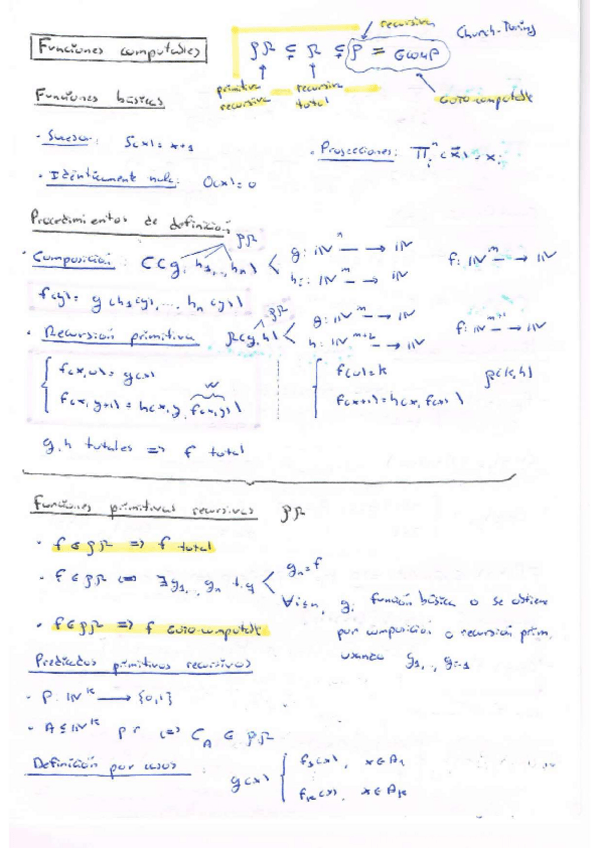 recursiva
Church-Turing
Funciones computables
PR ⊊ R ⊊ P = GCOMP
primitiva recursiva
recursiva total
GOTO-computable
Funciones básicas
· Sucesor: S(x) = x+1
· Proyecciones: Π_i^n (x⃗) = x_i
· Idénticamente nula: O(x) = 0
Procedimientos de definición
PR
· Composición: C(g; h_1,..,h_n) < g: IN^n – → IN
h_i: IN^m – → IN
f: IN^m – → IN
f(y) = g(h_1(y), ... h_n(y))
· Recursión primitiva R(g,h) < g: IN^m – → IN
PR
h: IN^{m+2} – → IN
f: IN^{m+1} – → IN
{ f(x,0) = g(x)
f(x,y+1) = h(x,y,f(x,y))
{ f(0) = k
f(x+1) = h(x,f(x))
R(k,h)
g,h totales => f total
Funciones primitivas recursivas PR
· f ∈ PR => f total
· f ∈ PR <=> ∃g_1,..,g_n t.q < g_n = f
∀i≤n, g_i función básica o se obtiene
por composición o recursión prim.
usando g_1,..,g_{i-1}
· f ∈ PR => f GOTO-computable
Predicados primitivos recursivos
· P: IN^k → {0,1}
· A ⊆ IN^k pr <=> C_A ∈ PR
Definición por casos
g(x) { f_1(x), x ∈ A_1
f_k(x), x ∈ A_k